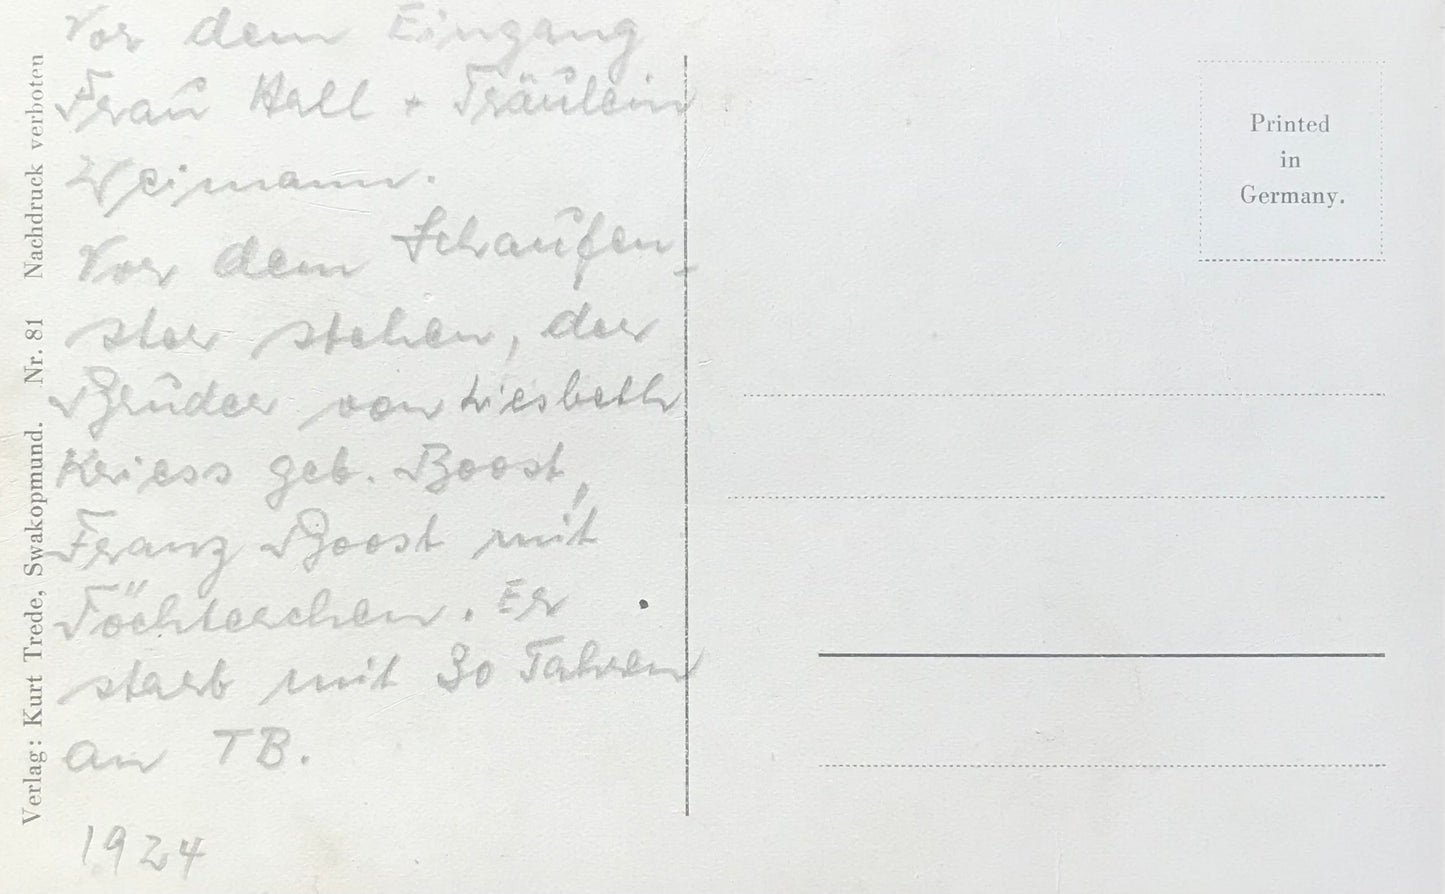 Vor dem Eingang
Frau Hall + Fräulein
Weimann.
Vor dem Schaufen-
ster stehen, der
Bruder von Liesbeth
Kriess geb. Boost,
Franz Boost mit
Töchterchen. Er
starb mit 30 Jahren
an TB.
1924
Verlag: Kurt Trede, Swakopmund. Nr. 81 Nachdruck verboten
Printed
in
Germany.